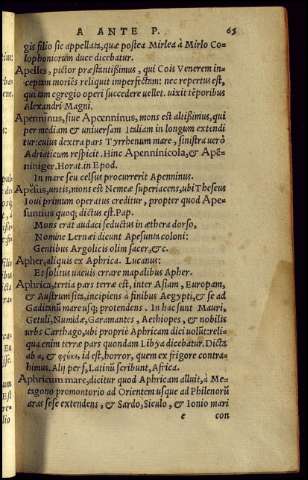 A ANTE P. 65
gis filio sic appellata, quæ postea Mirlea à Mirlo Co-
lophoniorum duce dicebatur.
Apelles, pictor præstantißimus, qui Cois Venerem in-
ceptam moriẽs reliquit imperfectam: nec repertus est,
qui tam egregio operi succedere uellet. uixit tẽporibus
Alexandri Magni.
Apenninus, siue Apœnninus, mons est altißimus, qui
per mediam & uniuersam Italiam in longum extendi
tur: cuius dextra pars Tyrrhenum mare, sinistra uerò
Adriaticum respicit. Hinc Apenninícola, & Apẽ-
níniger. Horat. in Epod.
In mare seu celsus procurrerit Apenninus.
Apĕsus, untis, mont est Nemeæ superiacens, ubi Theseus
Ioui primum operatus creditur, propter quod Ape-
suntius quoq; dictus est. Pap.
Mons erat audaci seductus in æthera dorso,
Nomine Lernæi dicunt Apesunta coloni:
Gentibus Argolicis olim sacer, &c.
Apher, aliquis ex Aphrica. Lucanus:
Et solitus uacuis errare mapalibus Apher.
Aphrica, tertia pars terræ est, inter Asiam, Europam,
& Austrum sita, incipiens à finibus Aegypti, & se ad
Gaditanũ mare usq; protendens. In hac sunt Mauri,
Getuli, Numidæ, Garamantes, Aethiopes, & nobilis
urbs Carthago, ubi propriè Aphricam dici uolũt: reli-
qua enim terræ pars quondam Libya dicebatur. Dicta
ab α, & φρίκη, id est, horror, quem ex frigore contra-
himus. Alij per f, Latinũ scribunt, Africa.
Aphricum mare, dicitur quod Aphricam alluit, à Me-
tagono promontorio ad Orientem usque ad Philenorũ
aras sese extendens, & Sardo, Siculo, & Ionio mari
e con